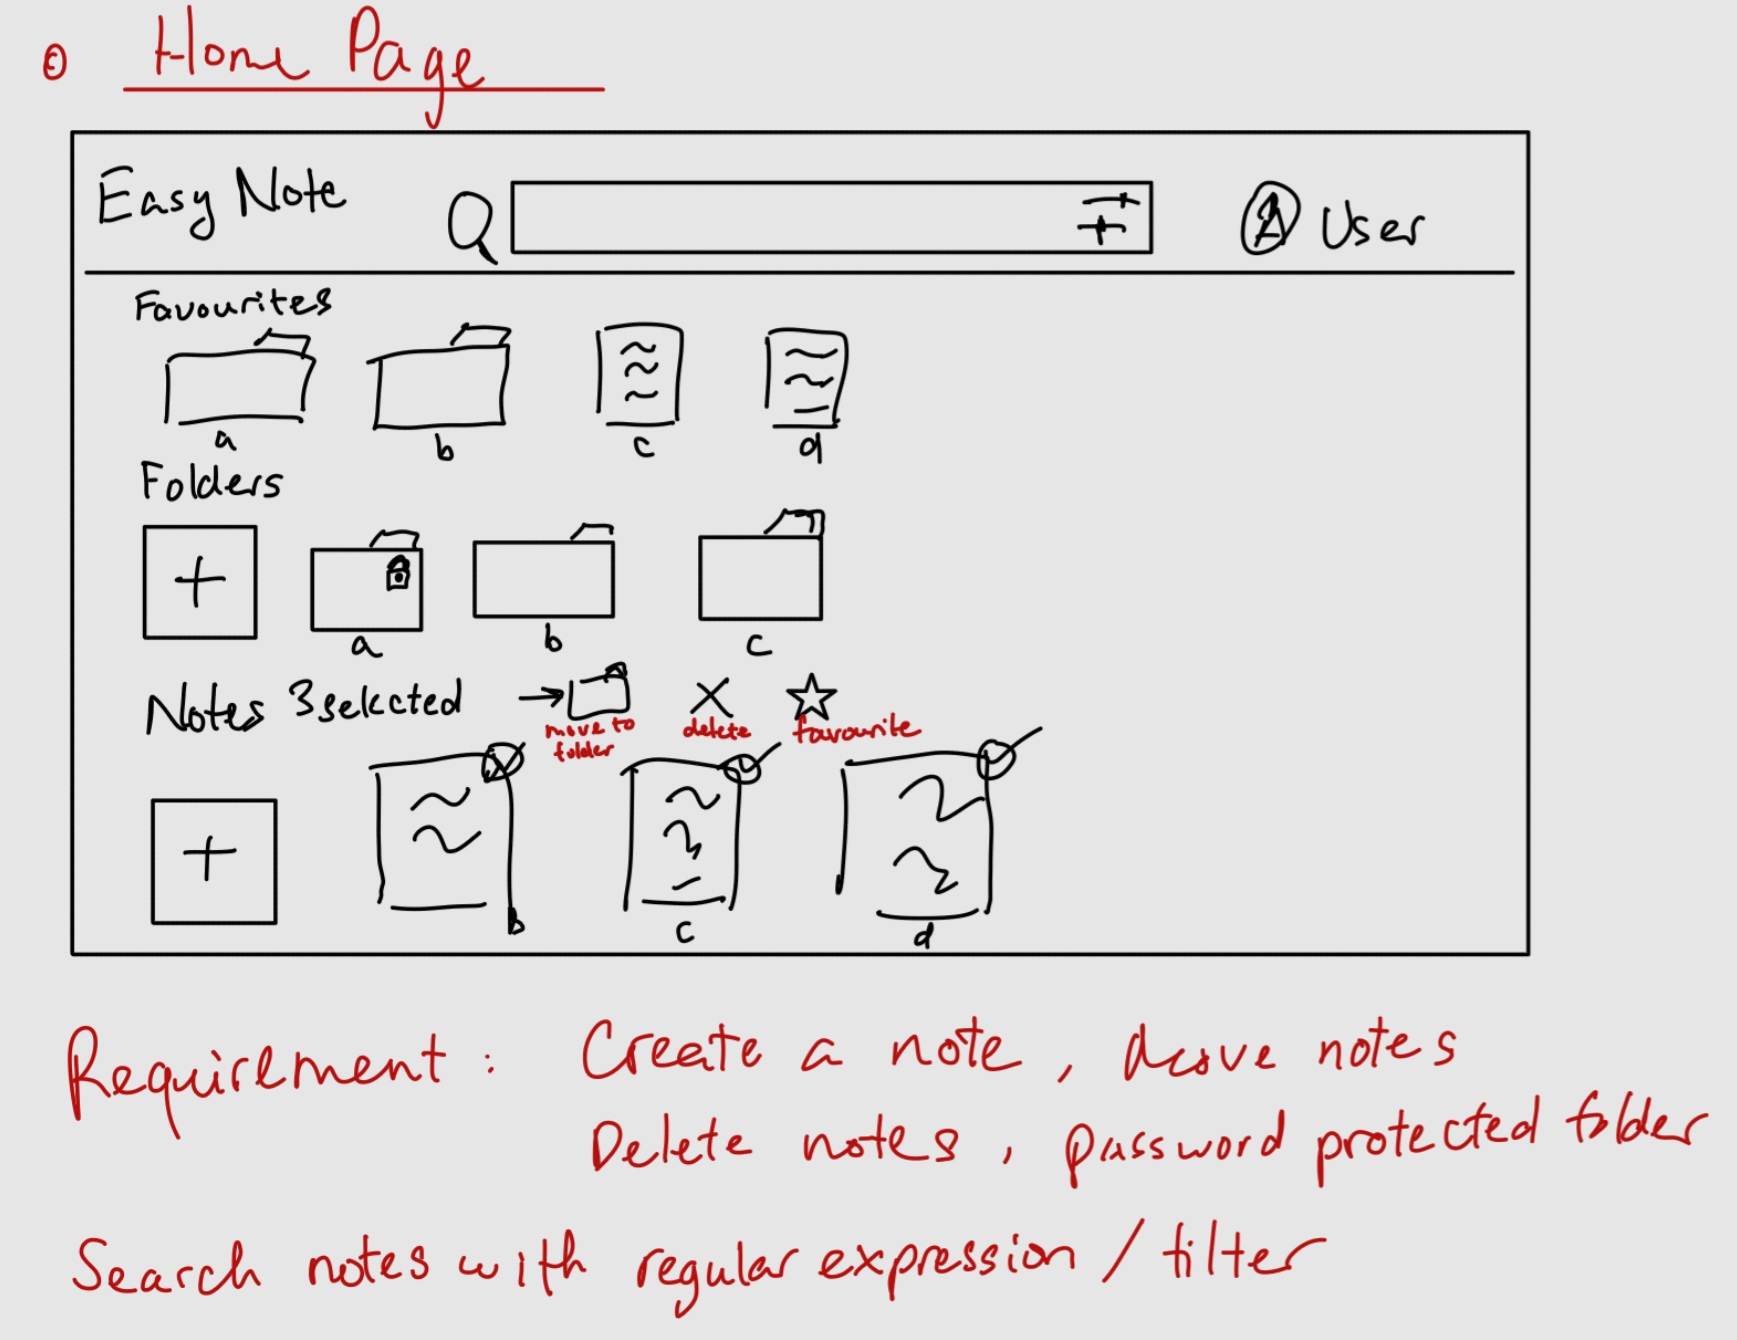 Home Page
Easy Note
User
Favourites
a b c d
Folders
+
a b c
Notes 3 selected
move to folder
delete
favourite
+
b c d
Requirement : Create a note, move notes
Delete notes, password protected folder
Search notes with regular expression / filter